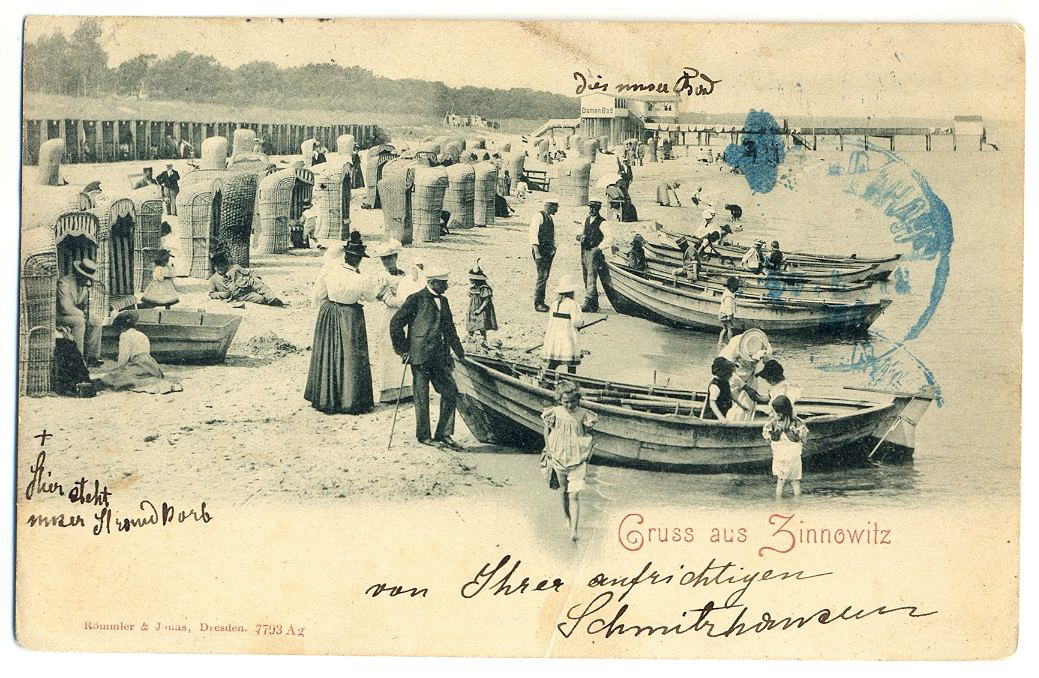 dies unser Bad
Damen Bad
+
Hier steht
unser Strandkorb
Gruss aus Zinnowitz
von Ihrer aufrichtigen
Schmitzhausen
Römmler & Jonas, Dresden. 7793 Ag